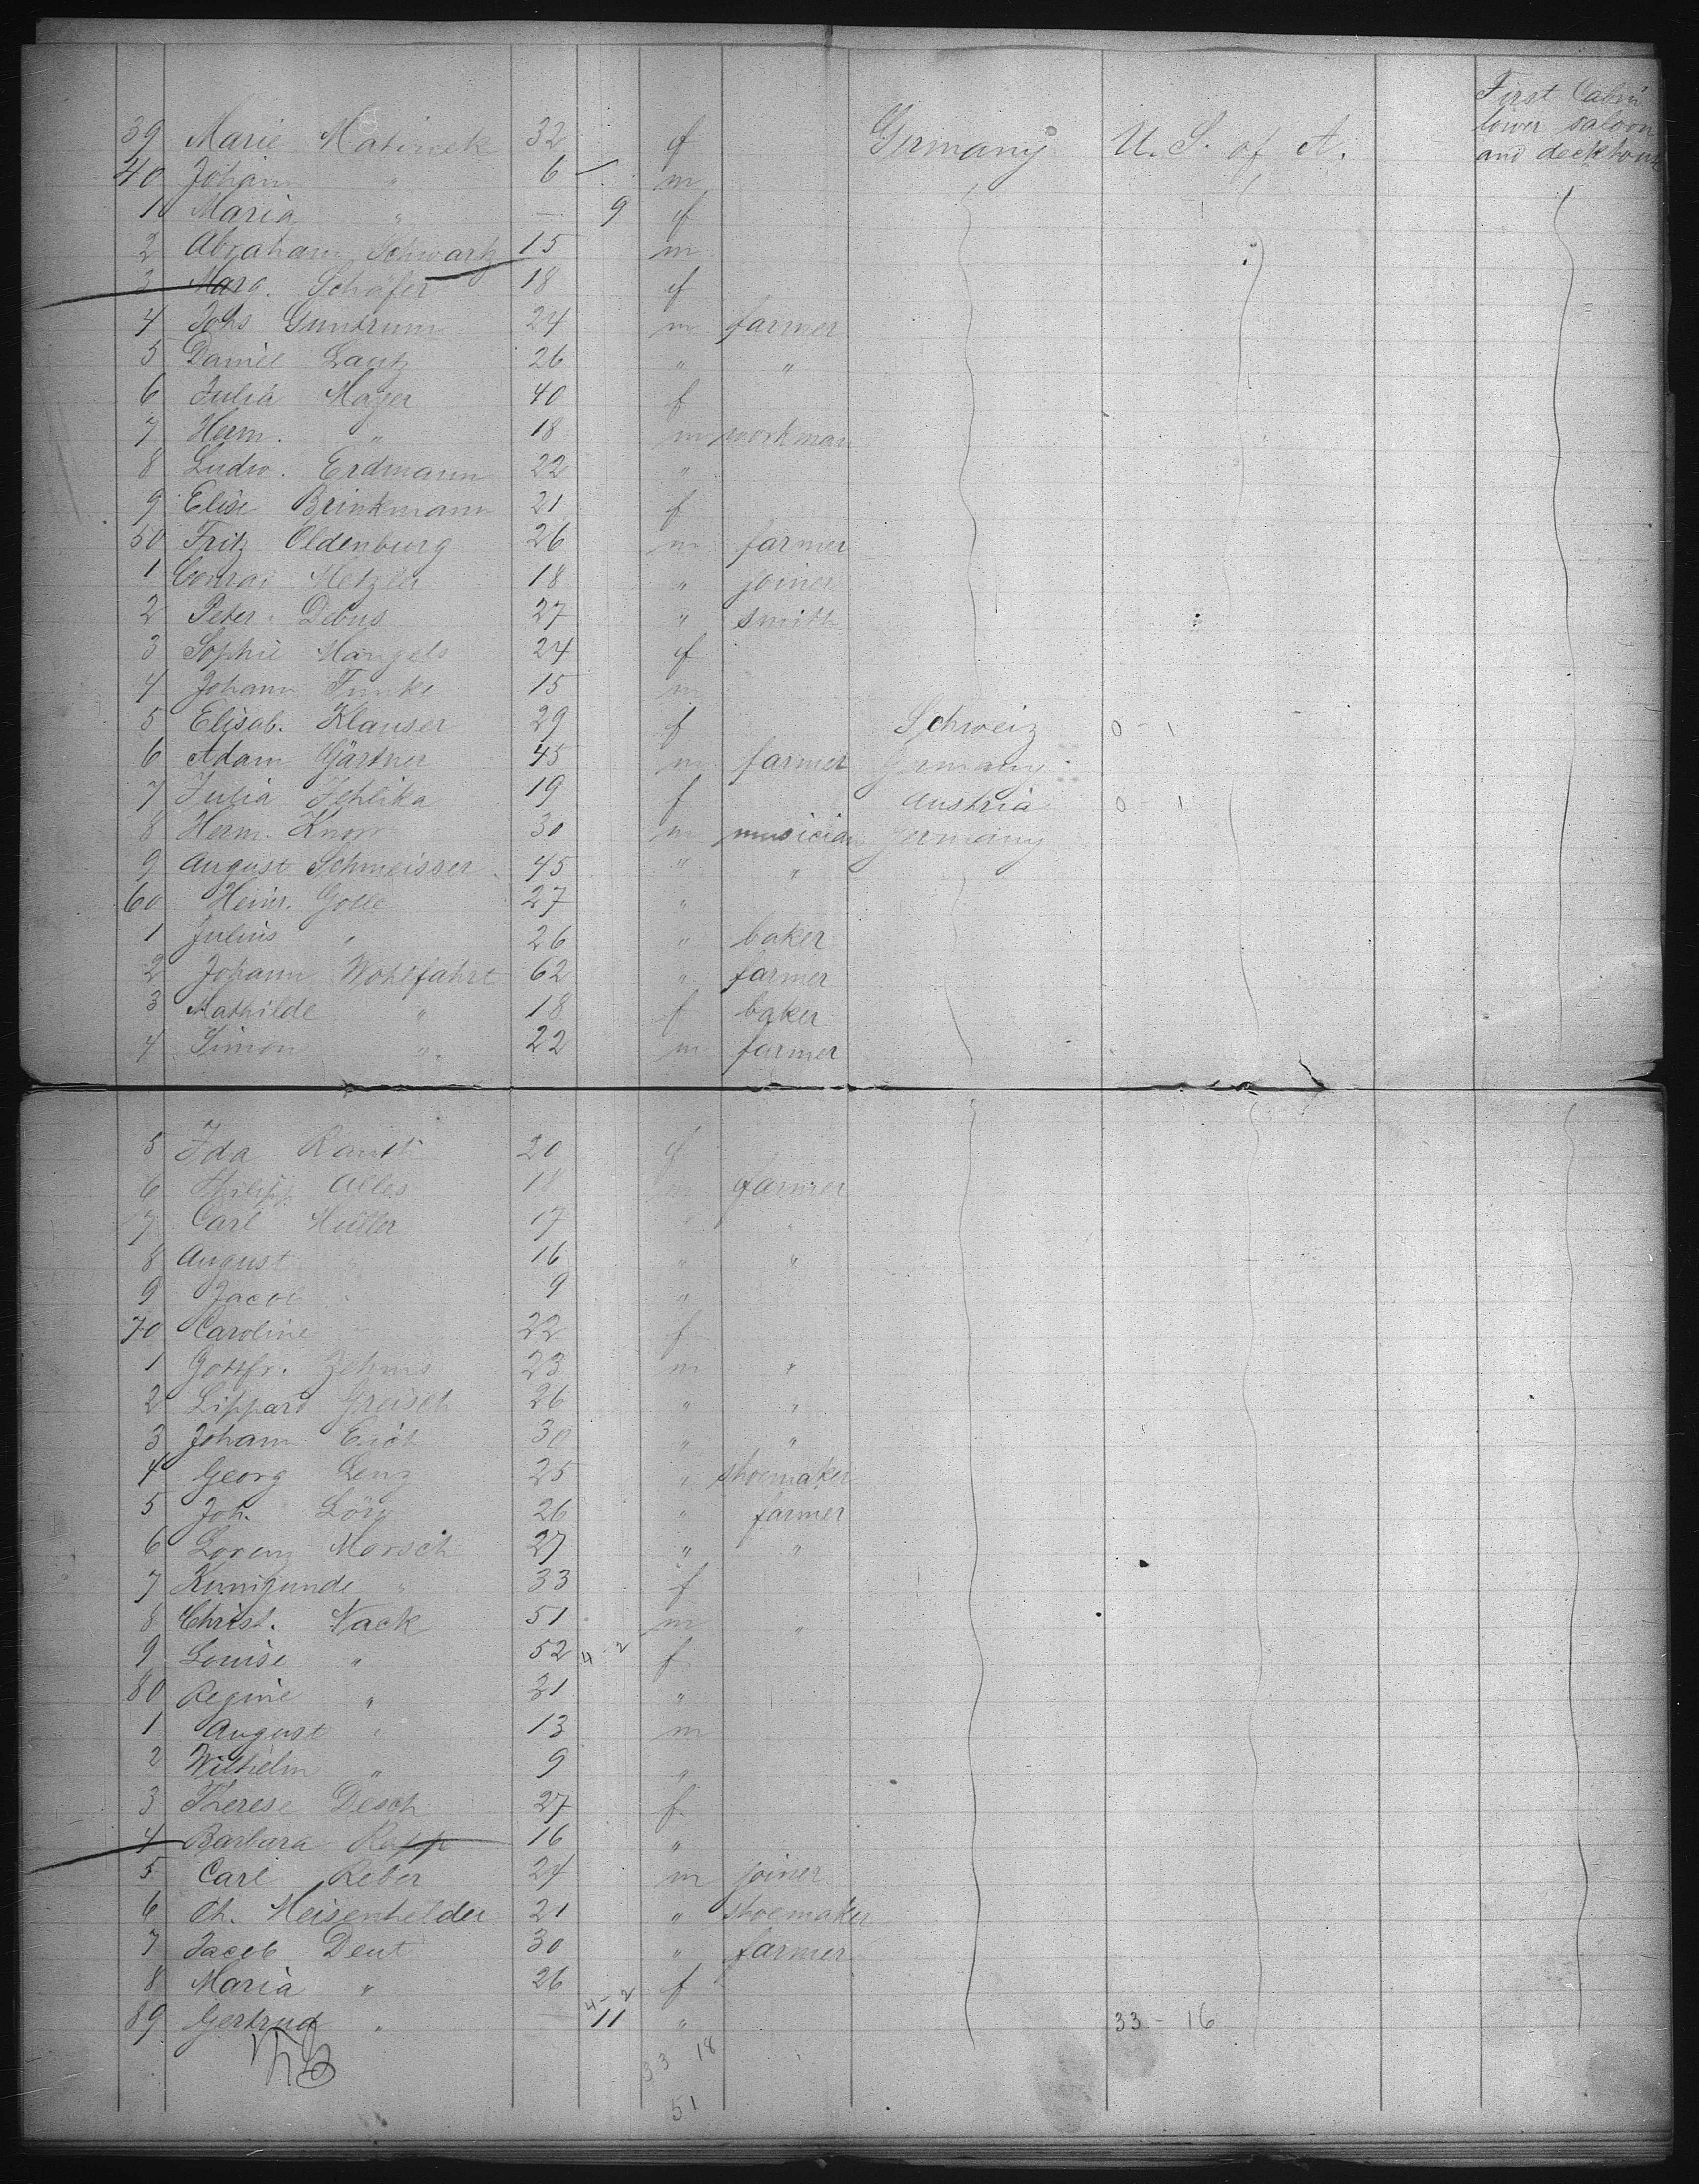 First Cabin
lower saloon
and deckhouse
39 Marie Matinek 32 f Germany U. S. of A.
40 Johann " 6 m
1 Maria " — 9 f
2 Abraham Schwartz 15 m
3 Marg. Schäfer 18 f
4 Johs Guntrum 24 m farmer
5 Daniel Lantz 26 " "
6 Julia Mayer 40 f
7 Herm. " 18 m workman
8 Ludw. Erdmann 22 "
9 Elise Brinkmann 21 f
50 Fritz Oldenburg 26 m farmer
1 Conrad Metzler 18 " joiner
2 Peter Debus 27 " smith
3 Sophie Mangels 24 f
4 Johann Funke 15 m
5 Elisab. Klauser 29 f Schweiz 0 - 1
6 Adam Gärtner 45 m farmer Germany
7 Julia Jehlika 19 f Austria 0 - 1
8 Herm. Knorr 30 m musician Germany
9 August Schmeisser 45 " "
60 Heinr. Golle 27 "
1 Julius " 26 " baker
2 Johann Wohlfahrt 62 " farmer
3 Mathilde " 18 f baker
4 Simon " 22 m farmer
5 Ida Rauth 20 f
6 Philipp Alles 18 m farmer
7 Carl Hütter 17 " "
8 August " 16 " "
9 Jacob " 9 "
70 Caroline 22 f
1 Gottfr. Zehms 23 m "
2 Lippard Greisch 26 " "
3 Johann Esch 30 " "
4 Georg Lenz 25 " shoemaker
5 Joh. Löry 26 " farmer
6 Lorenz Morsch 27 " "
7 Kunigunde " 33 f
8 Christ. Nack 51 m "
9 Louise " 52 4-2 f
80 Regine " 21 "
1 August " 13 m
2 Wilhelm " 9 "
3 Therese Desch 27 f
4 Barbara Rapp 16 "
5 Carl Reber 24 m joiner
6 Ch. Meisenhelder 21 " shoemaker
7 Jacob Deut 30 " farmer
8 Maria " 26 f
89 Gertrud " — 4-2 11 " 33 - 16
33 18
51